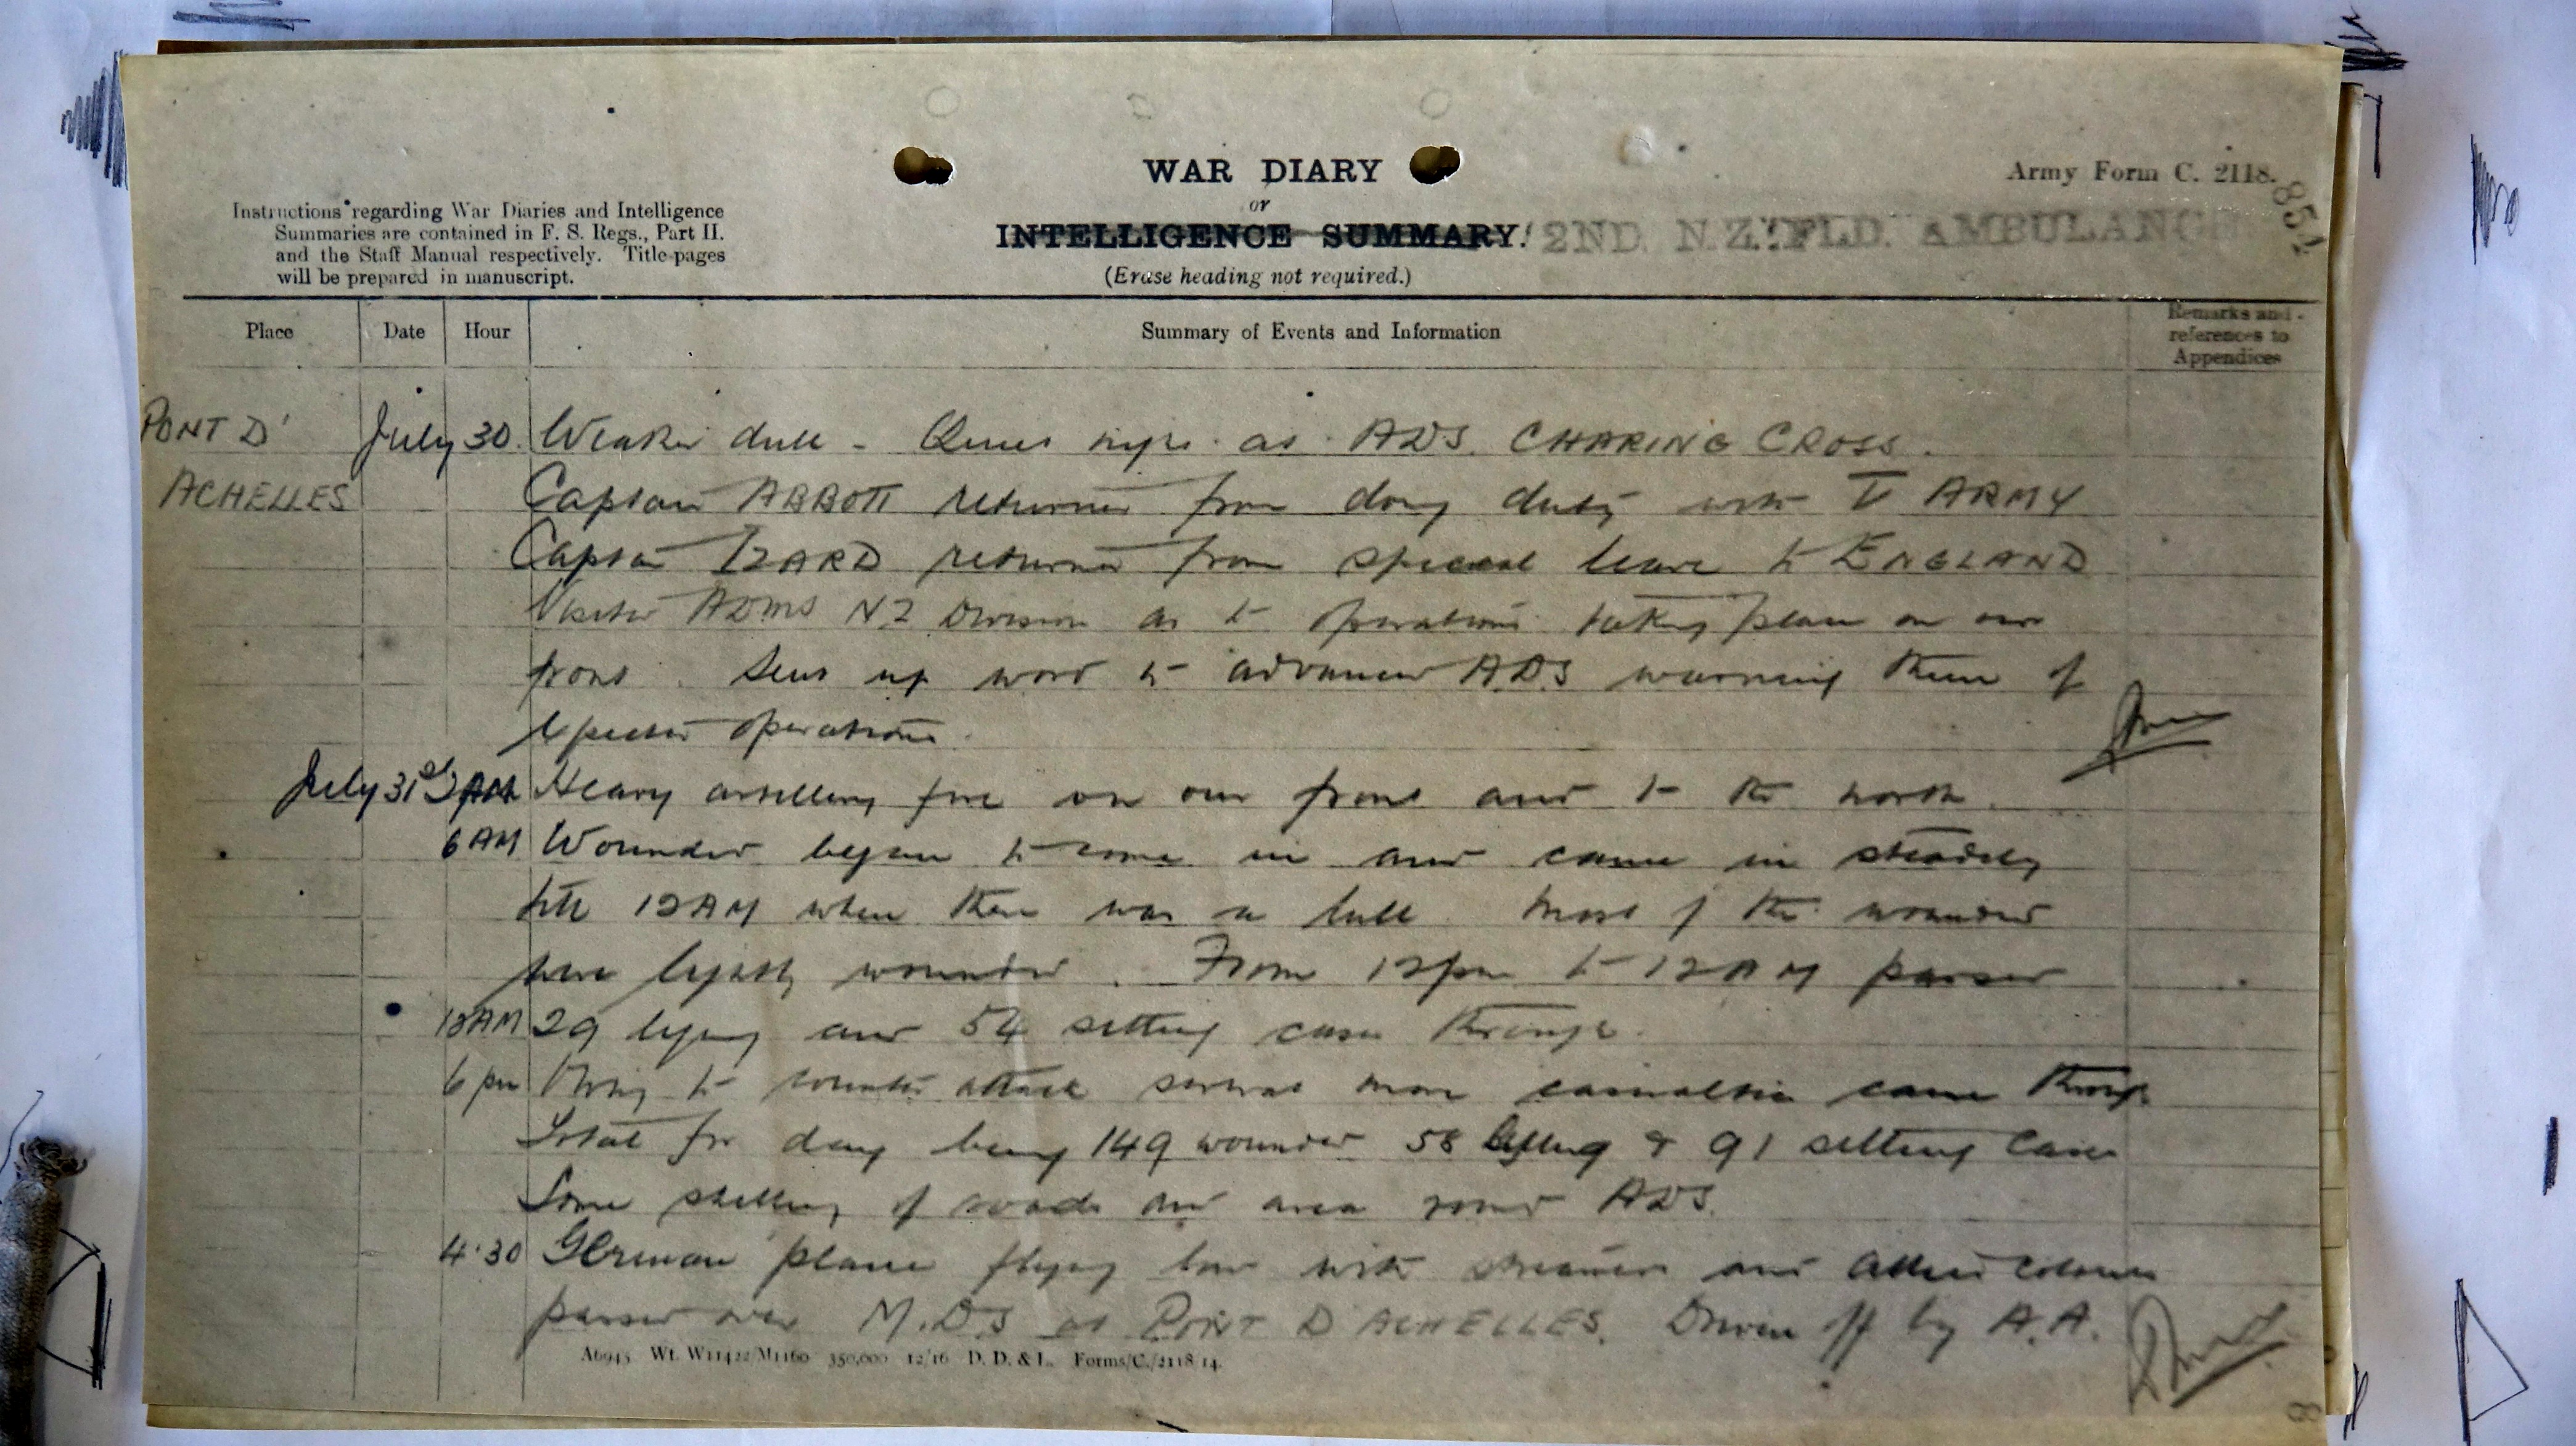 WAR DIARY
or
INTELLIGENCE SUMMARY.
(Erase heading not required.)
Army Form C. 2118.
2ND. N.Z. FLD. AMBULANCE
Instructions regarding War Diaries and Intelligence
Summaries are contained in F. S. Regs., Part II.
and the Staff Manual respectively. Title pages
will be prepared in manuscript.
Place Date Hour Summary of Events and Information Remarks and references to Appendices
PONT D' July 30. Weather dull - Quiet night at ADS. CHARING CROSS.
ACHELLES Captain ABBOTT returned from doing duty with V ARMY
Captain IZARD returned from special leave to ENGLAND
Visited ADMS NZ Division as to operations taking place on our
front. Sent up word to advanced A.D.S warning them of
expected operations.
July 31st 3 AM Heavy artillery fire on our front and to the north.
6 AM Wounded began to come in and came in steadily
till 12 AM when there was a lull. Most of the wounded
were lightly wounded. From 12 pm to 12 AM passed
12 AM 29 lying and 54 sitting cases through.
6 pm Owing to counter attack several more casualties came through
Total for day being 149 wounded 58 lying & 91 sitting cases
Some shelling of roads and area round ADS.
4.30 German plane flying low with streamers and Allied colours
passed over M.D.S at PONT D ACHELLES. Driven off by A.A.
A6945 Wt. W11422/M1160 350,000 12/16 D. D. & L. Forms/C./2118/14.